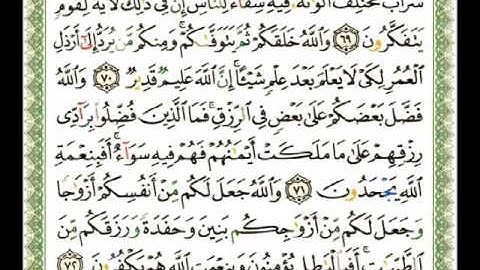 شَرَابٌ مُّخْتَلِفٌ أَلْوَٰنُهُۥ فِيهِ شِفَآءٌ لِّلنَّاسِ إِنَّ فِى ذَٰلِكَ لَءَايَةً لِّقَوْمٍ
يَتَفَكَّرُونَ ۝٦٩ وَٱللَّهُ خَلَقَكُمْ ثُمَّ يَتَوَفَّىٰكُمْ وَمِنكُم مَّن يُرَدُّ إِلَىٰٓ أَرْذَلِ
ٱلْعُمُرِ لِكَىْ لَا يَعْلَمَ بَعْدَ عِلْمٍ شَيْـًٔا إِنَّ ٱللَّهَ عَلِيمٌ قَدِيرٌ ۝٧٠ وَٱللَّهُ
فَضَّلَ بَعْضَكُمْ عَلَىٰ بَعْضٍ فِى ٱلرِّزْقِ ۚ فَمَا ٱلَّذِينَ فُضِّلُوا۟ بِرَآدِّى
رِزْقِهِمْ عَلَىٰ مَا مَلَكَتْ أَيْمَٰنُهُمْ فَهُمْ فِيهِ سَوَآءٌ ۚ أَفَبِنِعْمَةِ
ٱللَّهِ يَجْحَدُونَ ۝٧١ وَٱللَّهُ جَعَلَ لَكُم مِّنْ أَنفُسِكُمْ أَزْوَٰجًا
وَجَعَلَ لَكُم مِّنْ أَزْوَٰجِكُم بَنِينَ وَحَفَدَةً وَرَزَقَكُم مِّنَ
ٱلطَّيِّبَٰتِ ۚ أَفَبِٱلْبَٰطِلِ يُؤْمِنُونَ وَبِنِعْمَتِ ٱللَّهِ هُمْ يَكْفُرُونَ ۝٧٢